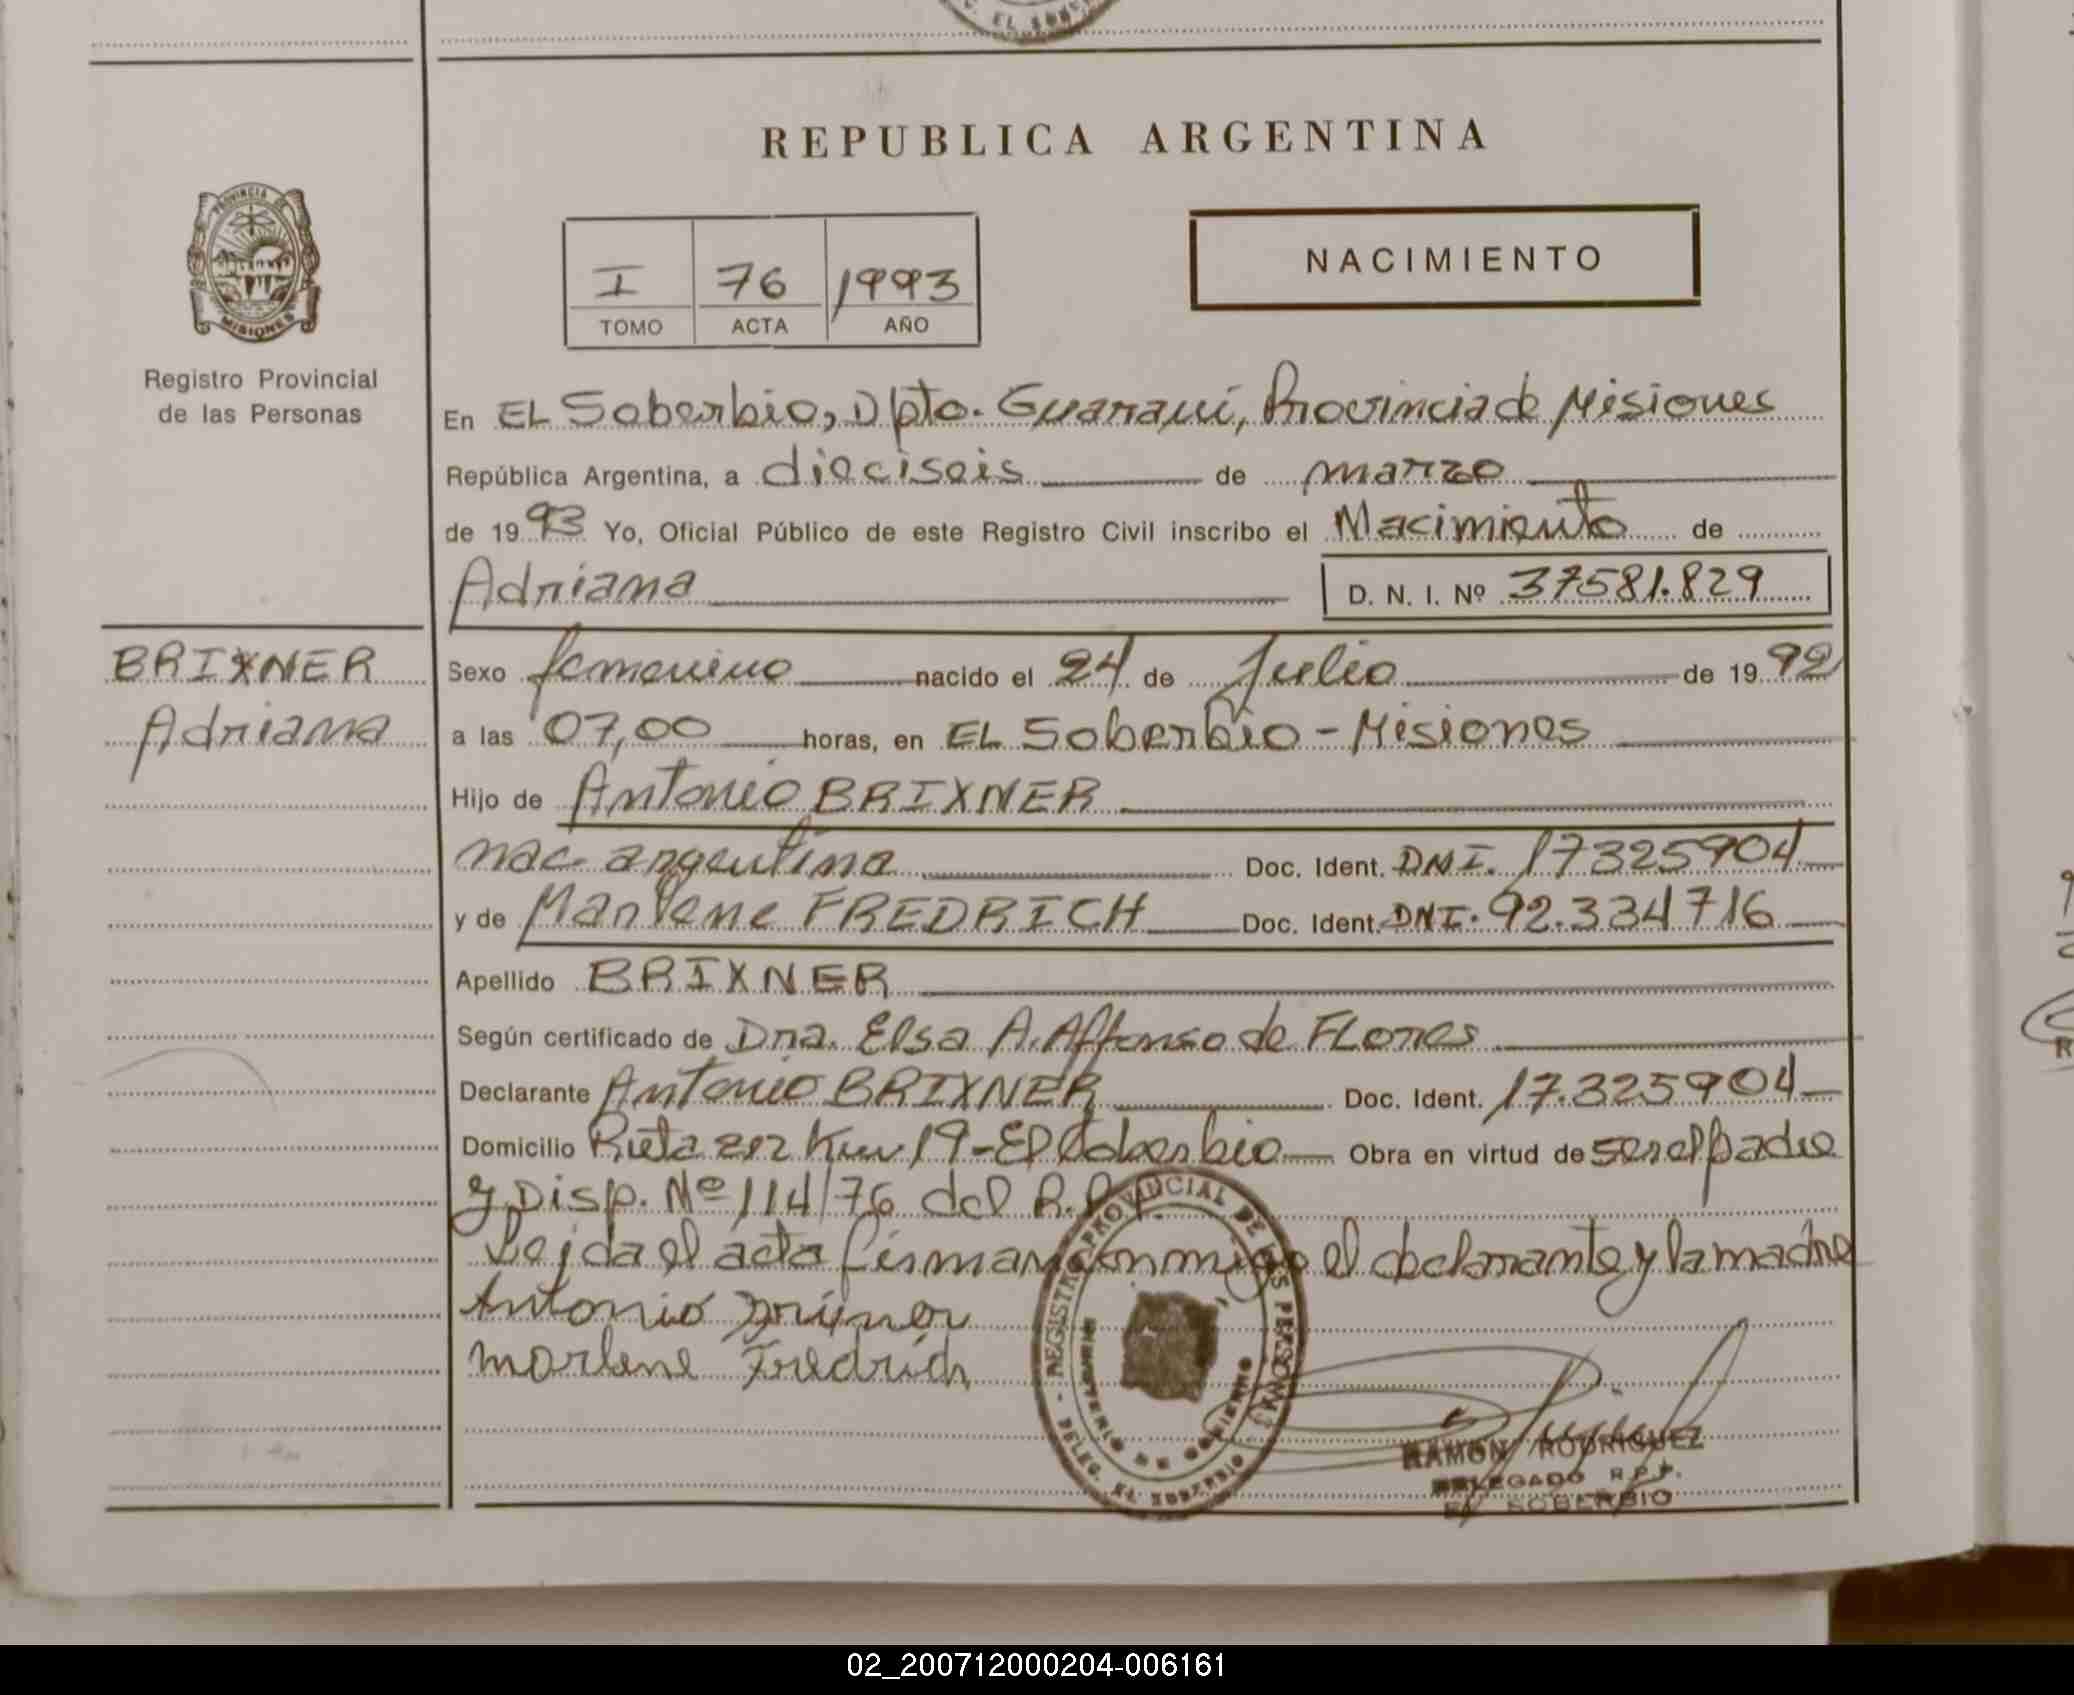 REPUBLICA ARGENTINA
PROVINCIA DE
MISIONES
Registro Provincial
de las Personas
I 76 1993
TOMO ACTA AÑO
NACIMIENTO
En EL Soberbio, Dpto. Guaraní, Provincia de Misiones
República Argentina, a dieciseis de marzo
de 1993 Yo, Oficial Público de este Registro Civil inscribo el Nacimiento de
Adriana D. N. I. Nº 37581.829
BRIXNER
Adriana
Sexo femenino nacido el 24 de Julio de 1992
a las 07,00 horas, en EL Soberbio - Misiones
Hijo de Antonio BRIXNER
nac. argentina Doc. Ident. DNI. 17325904
y de Marlene FREDRICH Doc. Ident. DNI. 92.334716
Apellido BRIXNER
Según certificado de Dra. Elsa A. Affonso de FLores
Declarante Antonio BRIXNER Doc. Ident. 17.325904
Domicilio Ruta 212 Km 19 - El Soberbio Obra en virtud de ser el padre
y Disp. Nº 114/76 del R.P.P.
Leida el acta firman conmigo el declarante y la madre
Antonio Brixner
Marlene Fredrich
REGISTRO PROVINCIAL DE LAS PERSONAS
MINISTERIO DE GOBIERNO
DELEG. EL SOBERBIO
RAMON RODRIGUEZ
DELEGADO R.P.P.
EL SOBERBIO
02_200712000204-006161